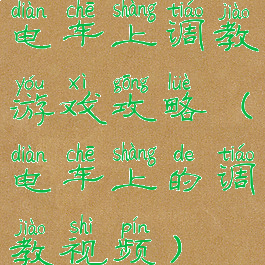 diàn chē shàng tiáo jiàn
电车上调教
yóu xì gōng lüè
游戏攻略（
diàn chē shàng de tiáo
电车上的调
jiàn shì pín
教视频）